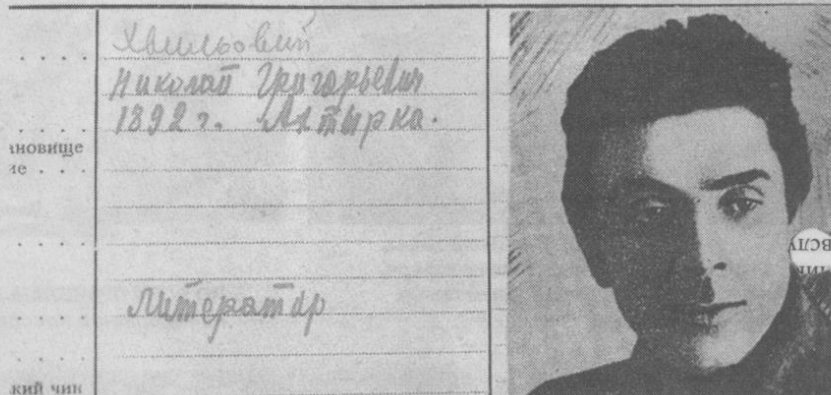 Хвильовий
Николай Григорьевич
1892 г. Ахтырка.
ановище
Литератор
кий чин